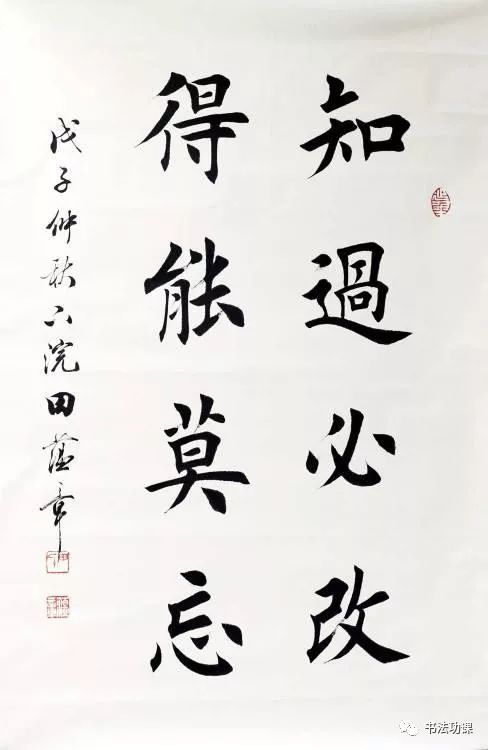 知過必改
得能莫忘
戊子仲秋下浣田蕴章
书法功课